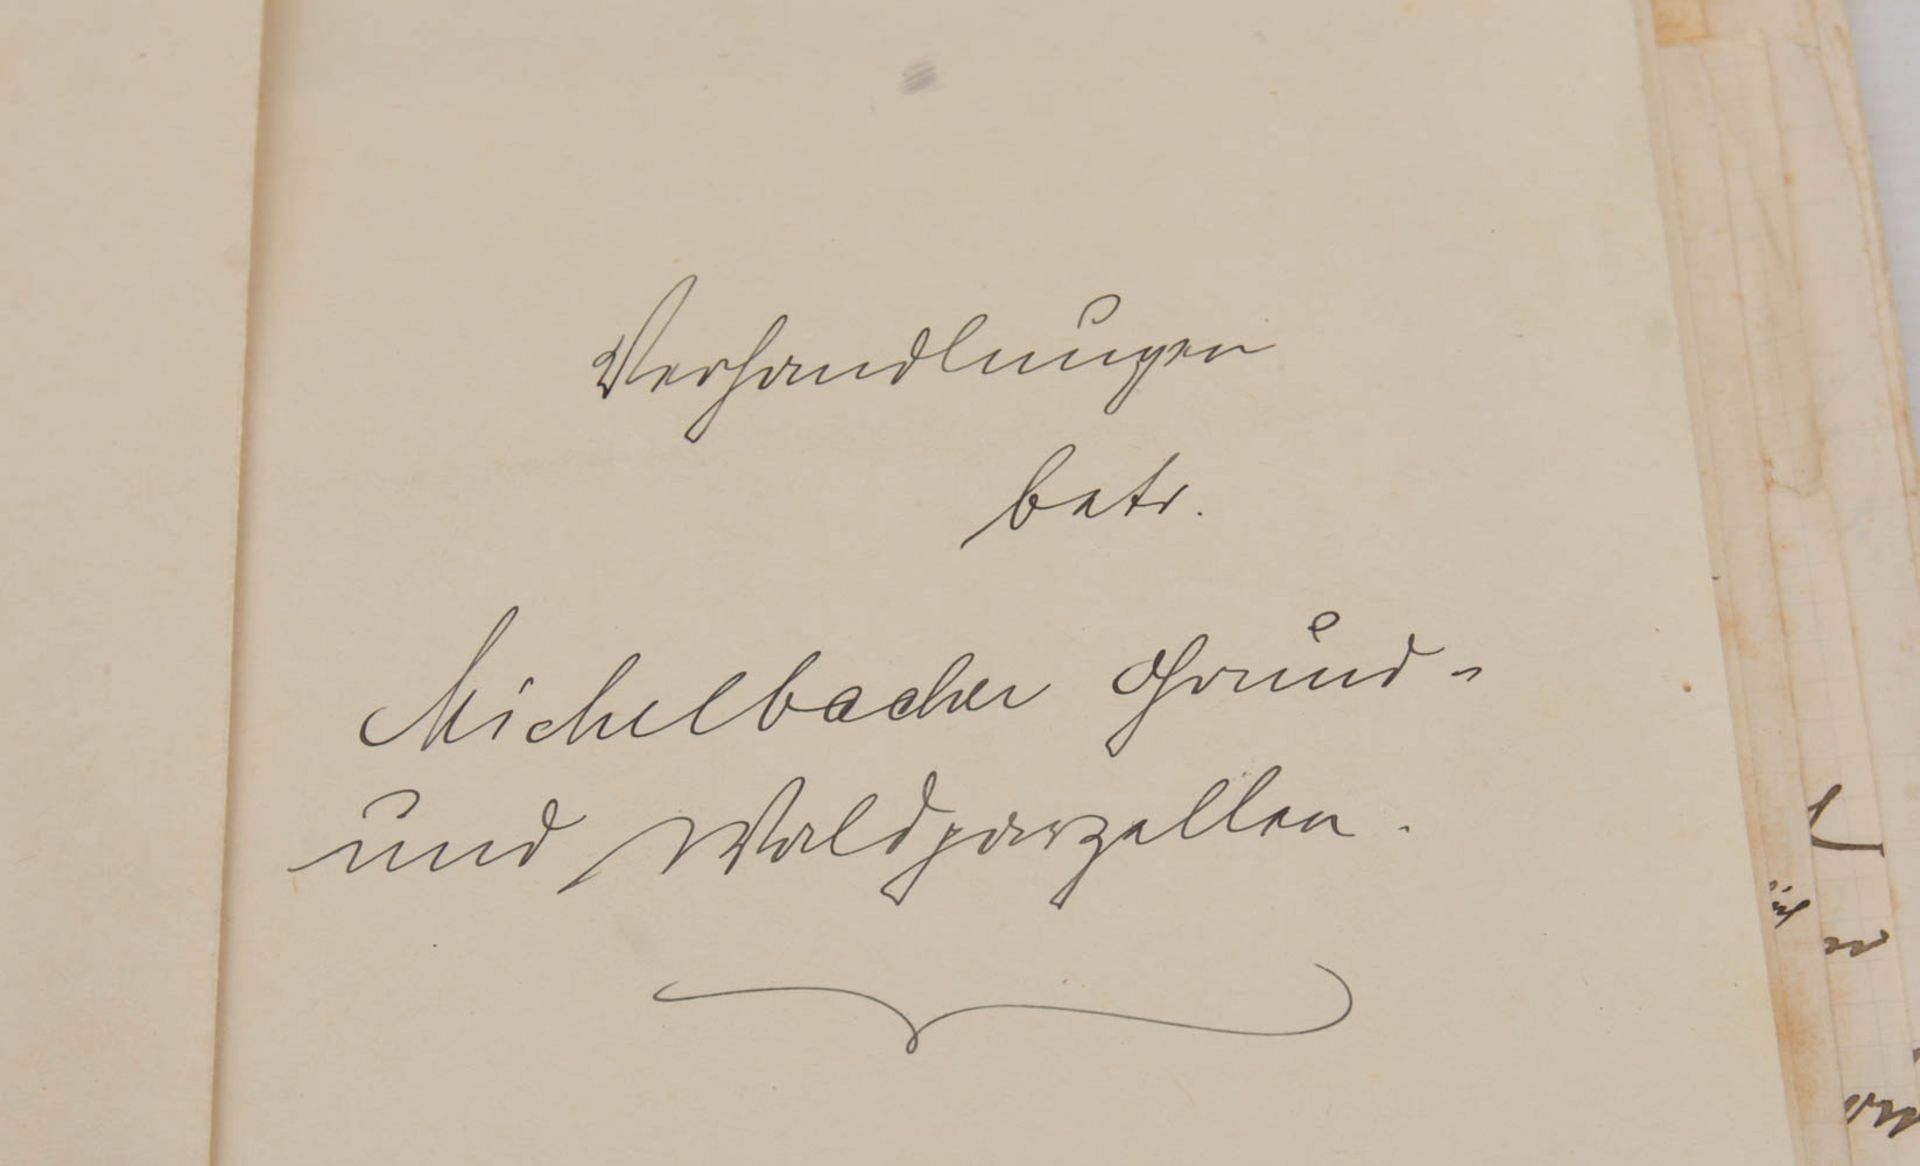 Verhandlungen
betr.
Michelbacher Grund-
und Waldparzellen.